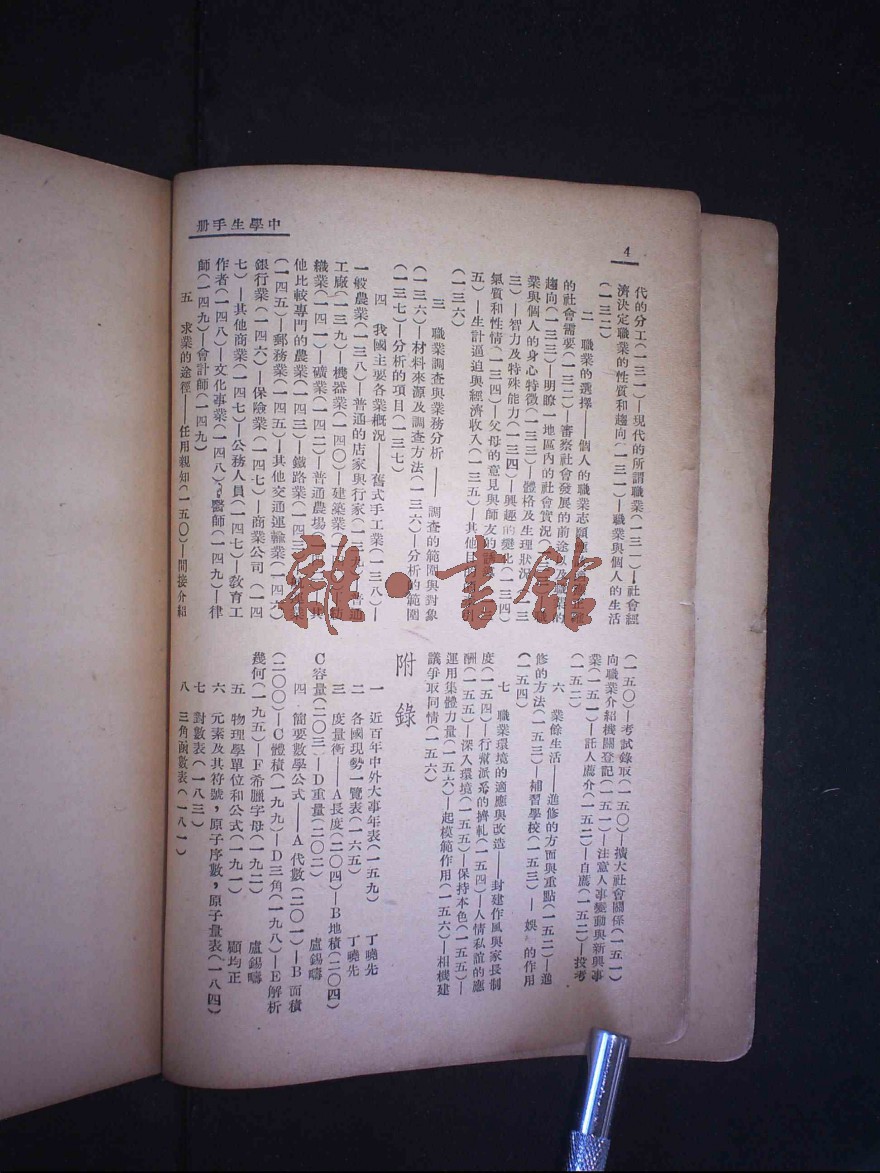 中學生手册
4
代的分工(一三一)—現代的所謂職業(一三一)—社會經
濟決定職業的性質和趨向(一三一)—職業與個人的生活
(一三二)
二 職業的選擇——個人的職業志願
的社會需要(一三二)—審察社會發展的前途以及職業的
趨向(一三三)—明瞭一地區內的社會實況
業與個人的身心特徵(一三三)—體格及生理狀況(一三
三)—智力及特殊能力(一三四)—興趣的變化(一三四)
氣質和性情(一三四)—父母的意見與師友的
五)—生計逼迫與經濟收入(一三五)—其他
(一三六)
三 職業調查與業務分析——調查的範圍與對象
(一三六)—材料來源及調查方法(一三六)—分析的範圍
(一三七)—分析的項目(一三七)
四 我國主要各業概況——舊式手工業(一三八)—
一般農業(一三八)—普通的店家與行家(一三九)—普通
工廠(一三九)—機器業(一四〇)—建築業
織業(一四一)—礦業(一四二)—普通農場 其
他比較專門的農業(一四三)—鐵路業(一四三)
(一四五)—郵務業(一四五)—其他交通運輸業(一四六)
銀行業(一四六)—保險業(一四七)—商業公司(一四
七)—其他商業(一四七)—公務人員(一四七)—教育工
作者(一四八)—文化事業(一四八)—醫師(一四九)—律
師(一四九)—會計師(一四九)
五 求業的途徑——任用親知(一五〇)—間接介紹
(一五〇)—考試錄取(一五〇)—擴大社會關係(一五一)
向職業介紹機關登記(一五一)—注意人事變動與新興事
業(一五一)—託人薦介(一五二)—自薦(一五二)—投考
(一五二)
六 業餘生活——進修的方面與重點(一五二)—進
修的方法(一五三)—補習學校(一五三)—娛 的作用
(一五四)
七 職業環境的適應與改造——封建作風與家長制
度(一五四)—行幫派系的擠軋(一五四)—人情私誼的應
酬(一五五)—深入環境(一五五)—保持本色(一五五)—
運用集體力量(一五六)—起模範作用(一五六)—相機建
議爭取同情(一五六)
附錄
一 近百年中外大事年表(一五九) 丁曉先
二 各國現勢一覽表(一六五) 丁曉先
三 度量衡——A長度(二〇四)—B地積(二〇四)
C容量(二〇三)—D重量(二〇二) 盧錫疇
四 簡要數學公式——A代數(二〇一)—B面積
(二〇〇)—C體積(一九九)—D三角(一九八)—E解析
幾何(一九五)—F希臘字母(一九二) 盧錫疇
五 物理學單位和公式(一九一) 顧均正
六 元素及其符號,原子序數,原子量表(一八四)
七 對數表(一八三)
八 三角函數表(一八一)
雜·書館